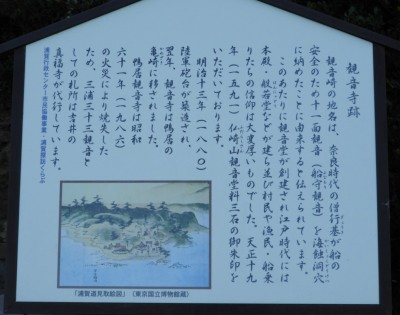 観音寺跡
観音崎の地名は、奈良時代の僧行基が船の
安全のため十一面観音(船守観音)を海蝕洞穴
に納めたことに由来すると伝えられています。
このあたりに観音堂が創建され江戸時代には
本殿・般若堂などが建ち並び村民や漁民・船乗
りたちの信仰は大変厚いものでした。天正十九
年(一五九一)仏崎山観音堂料三石の御朱印を
いただいております。
明治十三年(一八八〇)
陸軍砲台が築造され、
翌年、観音寺は鴨居の
亀崎に移されました。
鴨居観音寺は昭和
六十一年(一九八六)
の火災により焼失した
ため、三浦三十三観音と
しての札所は吉井の
真福寺が代行しています。
浦賀行政センター市民協働事業・浦賀探訪くらぶ
「浦賀道見取絵図」(東京国立博物館蔵)